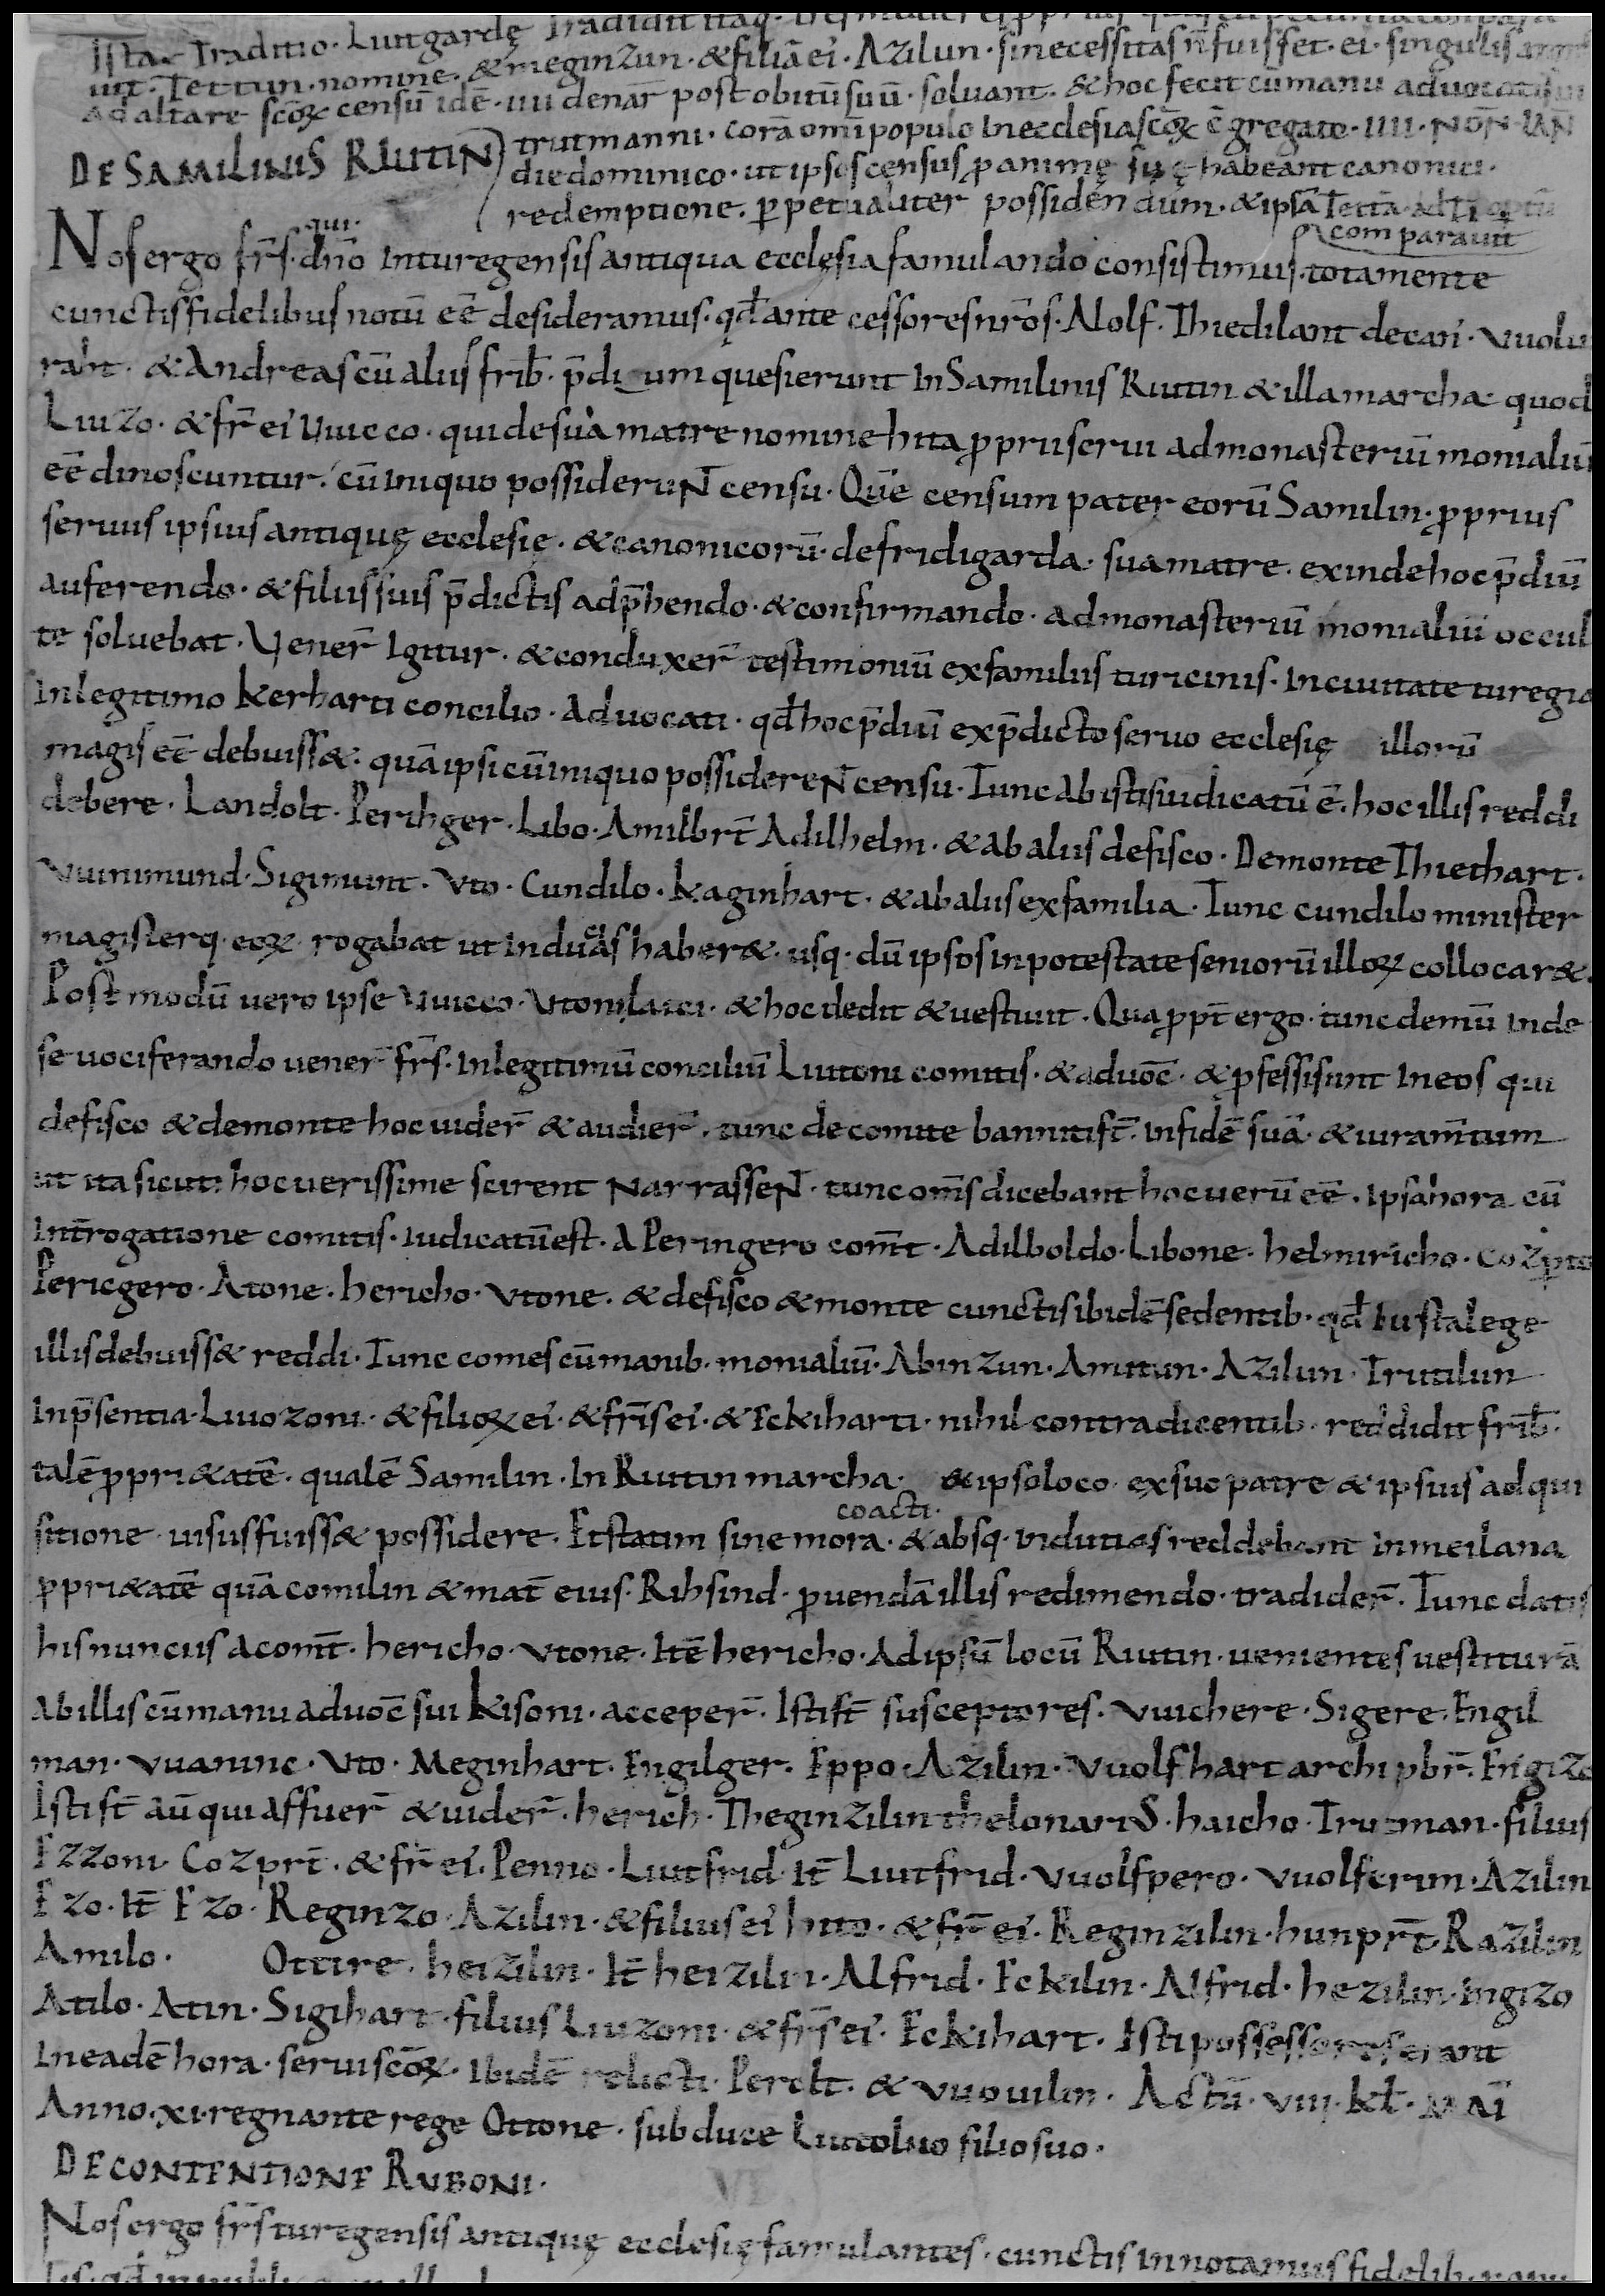 Ista Traditio. Liutgardę Tradidit itaq.
uit. Tettun. nomine. & meginzun. & filiā ei. Azilun. si necessitas n̄ fuisset. ei. singulis
Ad altare scōꝝ censū idē. iiii denar̄ post obitū suū. soluant. & hoc fecit cū manu aduocati sui
trutmanni. corā om̄i populo In ecclesia scōꝝ c̄gregato. IIII. NŌN. IAN
DE SAMILINIS RIUTIN
die dominico. ut ipsos census ꝓ animę suę habeant canonici.
redemptione. ꝑpetualiter possidendum. & ipsā Tettā
comparauit
qui.
Nos ergo fr̄s. dn̄o In turegensis antiqua ecclęsia famulando consistimus. tota mente
cunctis fidelibus notū eē desideramus. qđ ante cessores nr̄os. Nolf. Thiedilant decań. Vuolu
rant. & Andreas cū aliis frib̄. p̄dium quesierunt In Samilinis Riutin & illa marcha quod
Liuzo. & fr̄ ei Vuicco. qui de sua matre nomine hita ꝓprii serui ad monasteriū monialiū
eē dinoscuntur. cū iniquo possideruN̄ censu. Quē censum pater eorū Samilin. ꝓprius
seruus ipsius antiquę ecclesię. & canonicorū. de fridigarda. sua matre. exinde hoc p̄diū
auferendo. & filiis suis p̄dictis adp̄hendo. & confirmando. ad monasteriū monialiū occul
te soluebat. Vener̄ Igitur. & conduxer̄ testimoniū ex familiis turicinis. In ciuitate turegia
In legitimo kerharti concilio. Aduocati. qđ hoc p̄diū ex p̄dicto seruo ecclesię illorū
magis eē debuiss&. quā ipsi cū iniquo possidereN̄ censu. Tunc ab istis iudicatū ē. hoc illis reddi
debere. Landolt. Perihger. Libo. Amilbrt̄ Adilhelm. & ab aliis de fisco. De monte Thiethart.
Vuinimund. Sigimunt. Vto. Cundilo. Kaginhart. & ab aliis ex familia. Tunc cundilo minister
magisterq. eoꝝ. rogabat ut Induciās haber&. usq. dū ipsos in potestate seniorū illoꝝ collocar&.
Postmodū uero ipse Vuicco. Vtoni laici. & hoc dedit & uestiuit. Quaꝓpt̄ ergo. tunc demū Inde
se uociferando uener̄ fr̄s. In legitimū conciliū Liutoni comitis. & aduoc̄. & ꝓfessi sunt In eos qui
de fisco & de monte hoc uider̄ & audier̄. tunc de comite banniti st̄. In fidē suā. & iuram̄tum
ut ita sicuti hoc uerissime scirent NarrasseN̄. tunc om̄s dicebant hoc uerū eē. Ipsa hora cū
Int̄rogatione comitis. Iudicatū est. A Peringero com̄t. Adilboldo. Libone. helmiricho. Cozꝑto
Pericgero. Atone. hericho. Vtone. & de fisco & monte cunctis ibidē sedentib. qđ Iusta lege
illis debuiss& reddi. Tunc comes cū manib. monialiū. Abinzun. Amitun. Azilun. Trutilun
In p̄sentia. Liuozoni. & filioꝝ ei. & fr̄is ei. & Eckiharti. nihil contradicentib. reddidit frib̄.
talē ꝓpri&atē. qualē Samilin. In Riutin marcha. & ipso loco. ex suo patre & ipsius adqui
coacti.
sitione uisus fuiss& possidere. Et statim sine mora. & absq. indutias reddebant In meilana
ꝓpri&atē quā comilin & mat̄ eius. Rihsind. ꝓuendā illis redimendo. tradider̄. Tunc datis
his nunciis a com̄t. hericho. Vtone. Itē hericho. Ad ipsū locū Riutin. uenientes uestiturā
ab illis cū manu aduoc̄ sui kisoni. acceper̄. Isti st̄ susceptores. Vuichere. Sigere. Engil
man. Vuaninc. Vto. Meginhart. Engilger. Eppo. Azilin. Vuolfhart archipbr̄. Engizo
Isti st̄ aū qui affuer̄ & uider̄. herich. Theginzilin thelonariS. haicho. Trutman. filius
Ezzoni Cozprt̄. & fr̄ ei. Penno. Liutfrid. It̄ Liutfrid. Vuolfpero. Vuolfcrim. Azilin
Ezo. It̄ Ezo. Reginzo. Azilin. & filius ei hito. & fr̄ ei. Reginzilin. hunprt̄ Razilin
Amilo. Ottire. heizilin. It̄ heizilin. Alfrid. Eckilin. Alfrid. hezilin. Ingizo
Atilo. Atin. Sigihart. filius Liuzoni. & fr̄s ei. Eckihart. Isti possessores erant
In eadē hora. serui scōꝝ. Ibidē relicti. Perolt. & Vuouilin. Actū. VIII. kł. MAĪ
Anno. XI. regnante rege Ottone. sub duce Liutoluo filio suo.
DE CONTENTIONE RUBONI.
Nos ergo fr̄s turegensis antiquę ecclesię famulantes. cunctis innotamus fidelib.